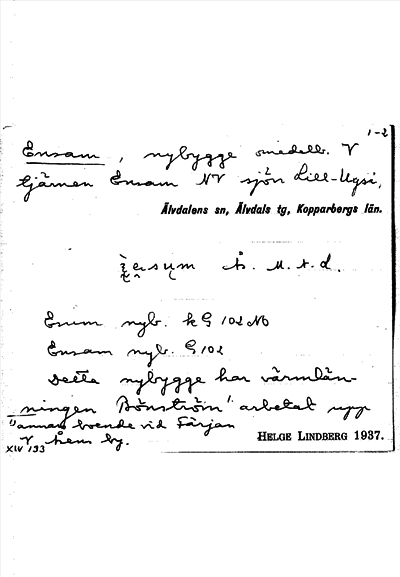 1-2
Ensam, nybygge omedelb. V
tjärnen Ensam NV sjön Lill-Ugsi,
Älvdalens sn, Älvdals tg, Kopparbergs län.
Å. M. t. d.
Esum nyb. k G 102 NO
Ensam nyb. G 102
Detta nybygge har värmlän-
ningen Bönström 1) arbetat upp
1) annars boende vid Färjan
V hem by.
HELGE LINDBERG 1937.
XIV 193